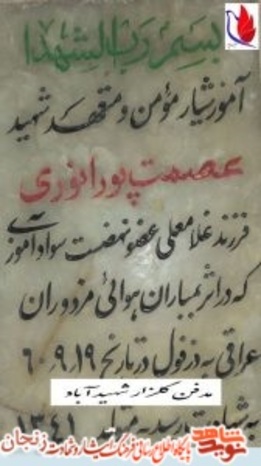 بسم رب الشهدا
آموزشیار مؤمن و متعهد شهید
عصمت پورانوری
فرزند غلامعلی عضو نهضت سوادآموزی
که در اثر بمباران هوائی مزدوران
عراقی به دزفول در تاریخ ۶۰٫۹٫۱۹
مدفن گلزار شهیدآباد
به شهادت رسید
۱۳۴۱
نوید شاهد
پایگاه اطلاع رسانی فرهنگ ایثار و شهادت زنجان